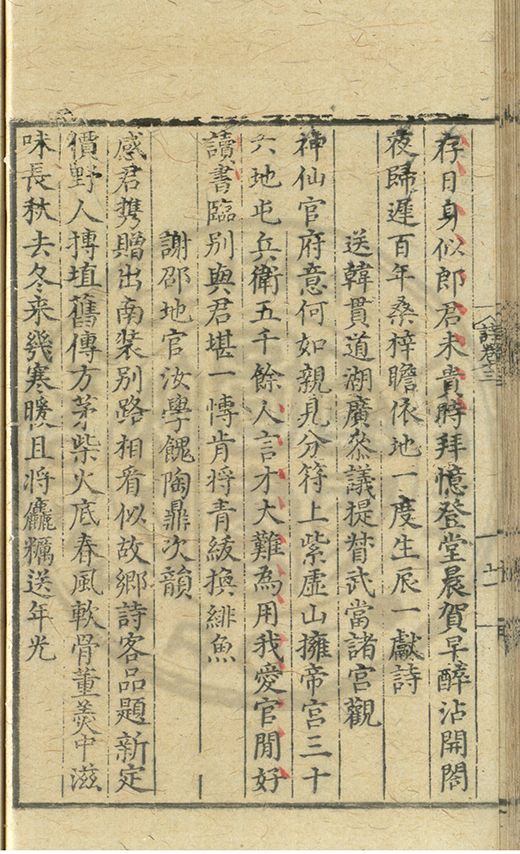 存日身似郎君未貴時拜憶登堂晨賀早醉沾開閤
夜歸遲百年桑梓瞻依地一度生辰一獻詩
送韓貫道湖廣叅議提督武當諸宮觀
神仙官府意何如親見分符上紫虛山擁帝宮三十
六地屯兵衛五千餘人言才大難為用我愛官閒好
讀書臨別與君堪一愽肯捋青綬換緋魚
謝邵地官汝學餽陶鼎次韻
感君擕贈出南裝別路相看似故鄉詩客品題新定
價野人摶埴舊傳方茅柴火底春風軟骨董羮中滋
味長秋去冬来幾寒暖且将麤糲送年光
詩卷三
十一